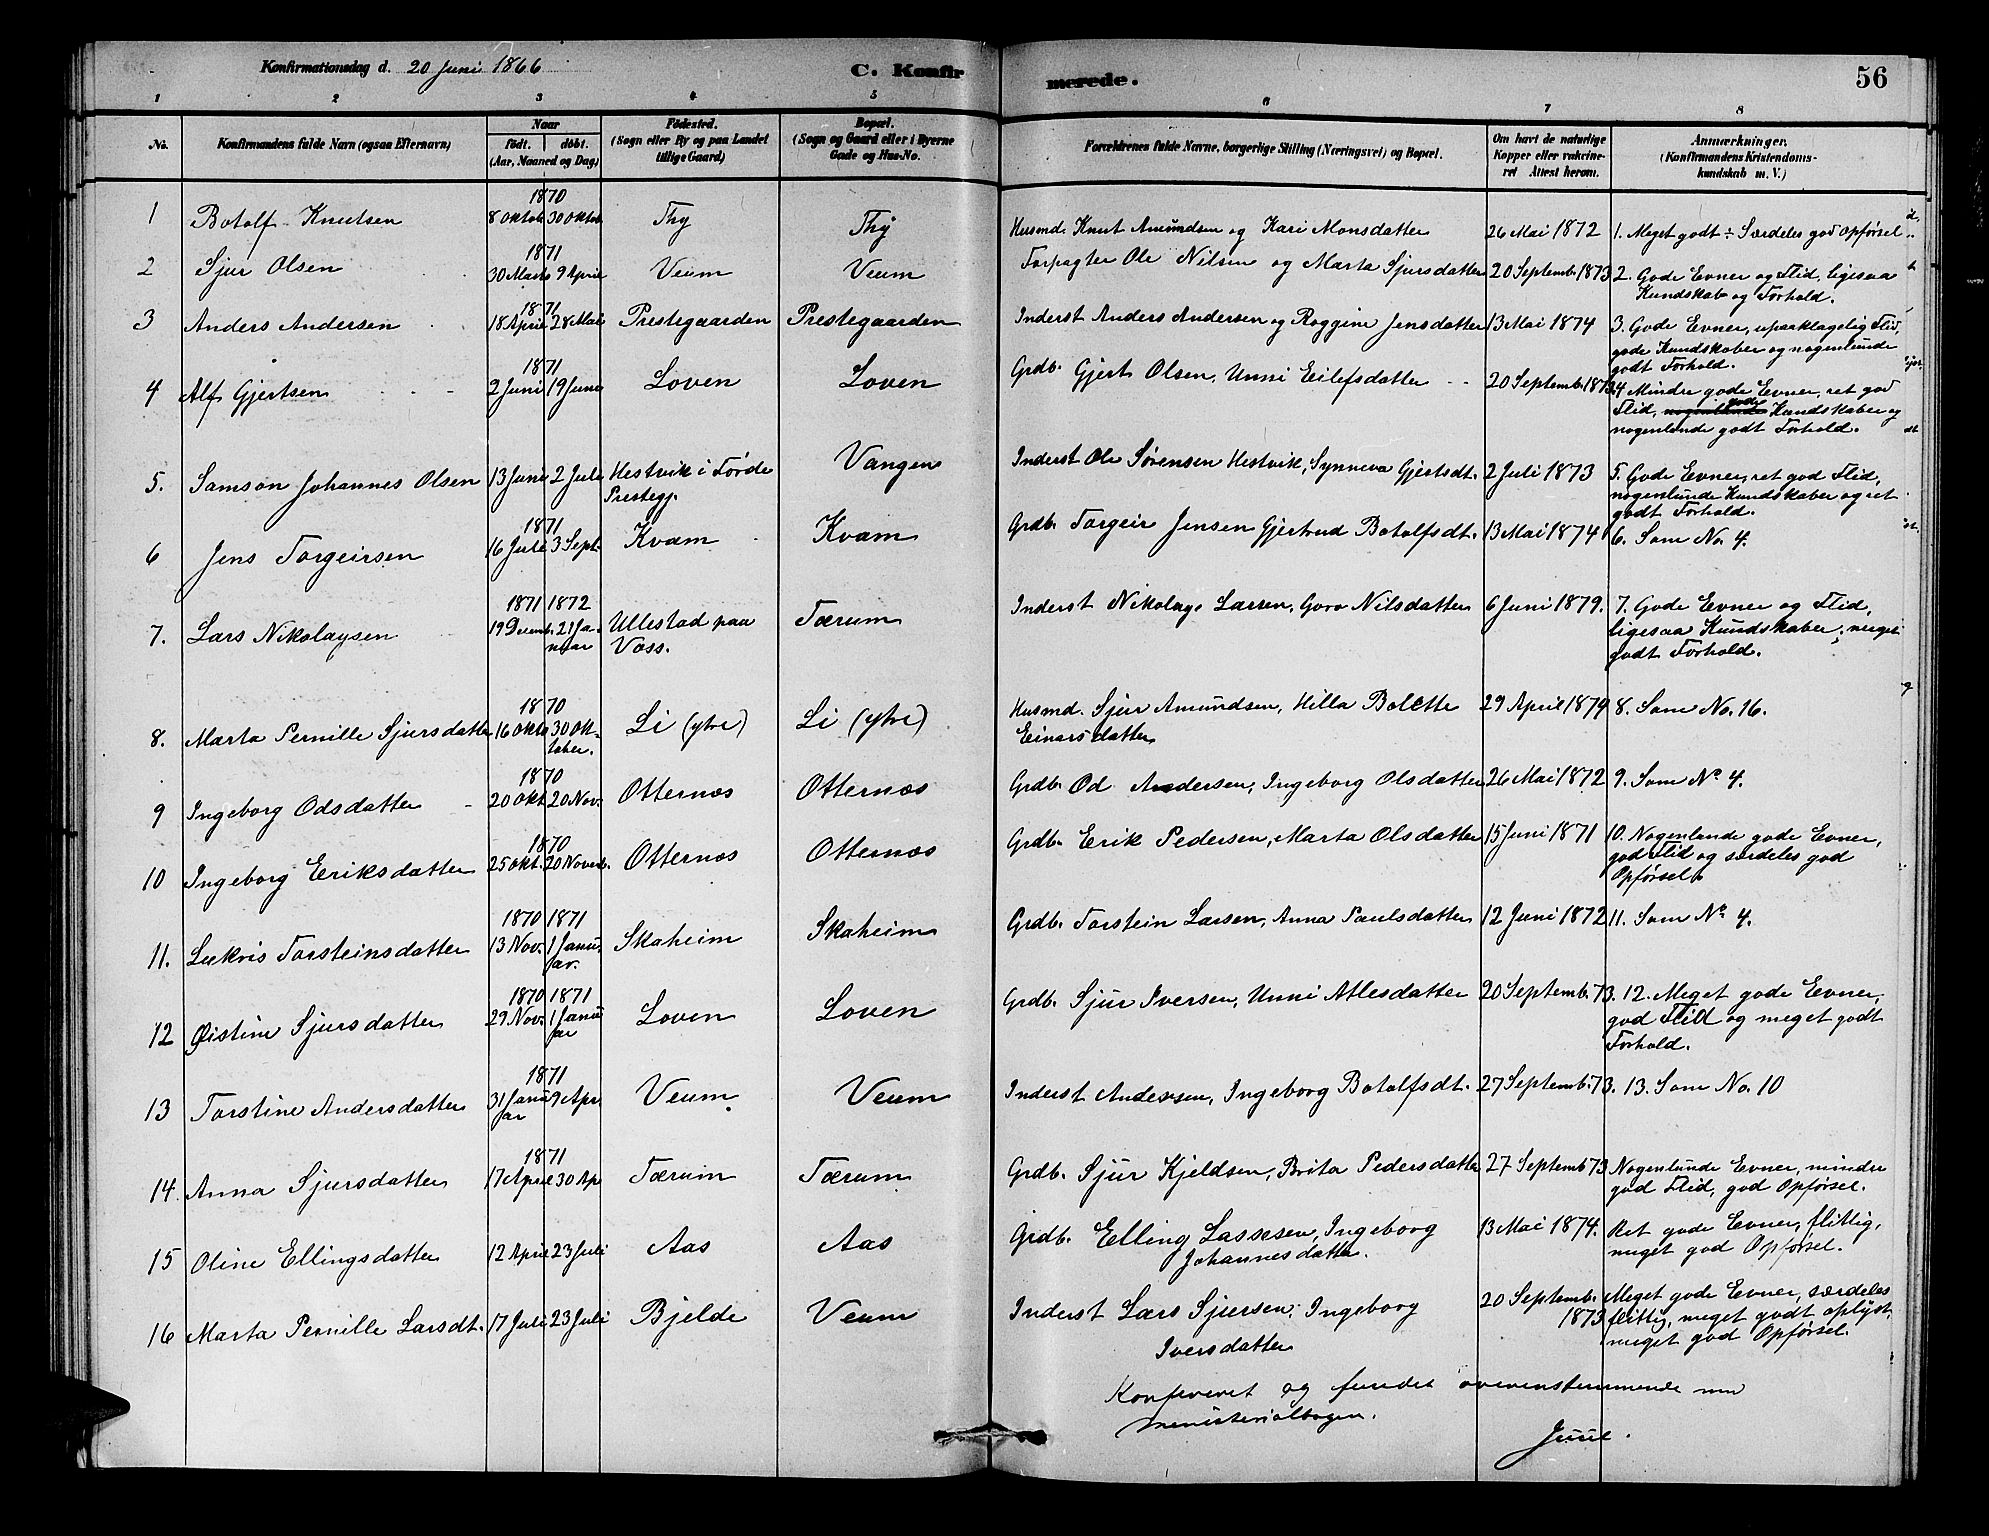 Konfirmationsdag d. 20 Juni 1866
C. Konfirmerede.
56
1 2 3 4 5 6 7 8
No. Konfirmandens fulde Navn (ogsaa Efternavn) Naar födt. döbt. (Aar, Maaned og Dag) Födested. (Sogn eller By og paa Landet tillige Gaard) Bopæl. (Sogn og Gaard eller i Byerne Gade og Hus-No. Forældrenes fulde Navne, borgerlige Stilling (Næringsvei) og Bopæl. Om havt de naturlige Kopper eller vakcineret Attest herom. Anmærkninger. (Konfirmandens Kristendomskundskab m. V.)
1870
1 Botolf Knutsen 8 Oktob. 30 Oktob. Thy Thy Husmd. Knut Amundsen og Kari Monsdatter 26 Mai 1872 1. Meget godt ÷ Særdeles god Opførsel
1871
2 Sjur Olsen 30 Marts 9 April Veum Veum Forpagter Ole Nilsen og Marta Sjursdatter 20 Septemb. 1873 2. Gode Evner og Flid, ligesaa
Kundskab og Forhold.
1871
3 Anders Andersen 18 April 28 Mai Prestegaarden Prestegaarden Inderst Anders Andersen og Roggine Jensdatter 13 Mai 1874 3. Gode Evner, upaaklagelig Flid,
gode Kundskaber og nogenlunde
godt Forhold.
1871
4 Alf Gjertsen 2 Juni 19 Juni Loven Loven Grdb. Gjert Olsen, Unni Eilefsdatter 20 Septemb. 1873 4 Mindre gode Evner, ret god
Flid, gode Kundskaber og
nogenlunde godt Forhold.
5. Samson Johannes Olsen 13 Juni 2 Juli Hestvik i Førde Vangen Inderst Ole Sørensen Hestvik, Synneva Gjertsdt. 2 Juli 1873 5. Gode Evner, ret god Flid,
Prestegj. nogenlunde Kundskaber og ret
godt Forhold.
1871
6 Jens Torgeirsen 16 Juli 3 Sept. Kvam Kvam Grdb. Torgeir Jensen Gjertrud Botolfsdt. 13 Mai 1874 6. Som No. 4.
1871 1872
7. Lars Nikolaysen 19 Decemb. 21 Januar Ullestad paa Voss. Tærum Inderst Nikolay Larsen, Goro Nilsdatter 6 Juni 1879. 7. Gode Evner og Flid,
ligesaa Kundskaber, meget
godt Forhold.
1870
8. Marta Pernille Sjursdatter 16 Okto 30 Oktober. Li (ytre) Li (ytre) Husmd. Sjur Amundsen, Hilla Bolette 29 April 1879 8. Som No. 16.
Einarsdatter
1870
9 Ingeborg Odsdatter 20 Okt. 20 Nov. Otternæs Otternæs Grdb. Od Andersen, Ingeborg Olsdatter 26 Mai 1872 9. Som No 4.
1870
10 Ingeborg Eriksdatter 25 Okt. 20 Novemb. Otternæs Otternæs Grdb. Erik Pedersen, Marta Olsdatter 15 Juni 1871 10. Nogenlunde gode Evner,
god Flid og særdeles god
Opførsel
1870 1871
11. Lukris Torsteinsdatter 13 Nov. 1 Januar. Skaheim Skaheim Grdb. Torstein Larsen, Anna Paulsdatter 12 Juni 1872 11. Som No 4.
1870 1871
12 Øistine Sjursdatter 29 Nov. 1 Januar Loven Loven Grdb. Sjur Iversen, Unni Atlesdatter 20 Septemb. 73. 12. Meget gode Evner,
god Flid og meget godt
Forhold.
1871
13 Torstine Andersdatter 31 Januar 9 Apr. Veum Veum Inderst Andersen, Ingeborg Botolfsdt. 27 Septemb. 73. 13. Som No. 10
1871
14. Anna Sjursdatter 17 April 30 Ap Tærum Tærum Grdb. Sjur Kjeldsen, Brita Pedersdatter 27 Septemb 73 Nogenlunde Evner, mindre
god Flid, god Opførsel.
15 Oline Ellingsdatter 12 April 23 Juli Aas Aas Grdb. Elling Lassesen, Ingeborg 13 Mai 1874. Ret gode Evner, flittig,
Johannesdatter. meget god Opførsel.
16 Marta Pernille Larsdt. 17 Juli 23 Juli Bjelde Veum Inderst Lars Sjursen, Ingeborg 20 Septemb. 1873 Meget gode Evner, særdeles
Iversdatter flittig, meget godt oplyst,
meget god Opførsel.
Konfereret og fundet overensstemmende med
ministerialbogen.
Juul.